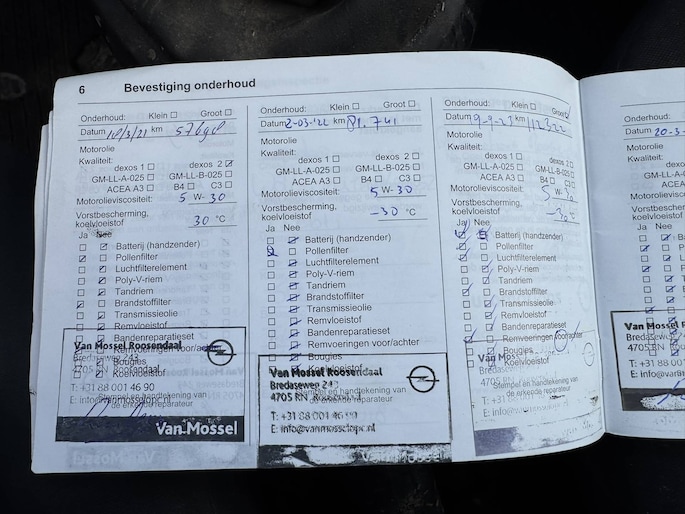 6 Bevestiging onderhoud
Onderhoud: Klein Groot
Datum 18/3/21 km
Motorolie
Kwaliteit:
dexos 1 dexos 2
GM-LL-A-025 GM-LL-B-025
ACEA A3 B4 C3
Motorolieviscositeit: 5 W- 30
Vorstbescherming,
koelvloeistof 30 °C
Ja Nee
Batterij (handzender)
Pollenfilter
Luchtfilterelement
Poly-V-riem
Tandriem
Brandstoffilter
Transmissieolie
Remvloeistof
Bandenreparatieset
Remvoeringen voor/achter
Bougies
Koelvloeistof
Stempel en handtekening van
de erkende reparateur
Van Mossel Roosendaal
Bredaseweg 243
4705 RN Roosendaal
T: +31 88 001 46 90
E: info@vanmosselopc.nl
Van Mossel
Onderhoud: Klein Groot
Datum 2-03-'22 km 81.741
Motorolie
Kwaliteit:
dexos 1 dexos 2
GM-LL-A-025 GM-LL-B-025
ACEA A3 B4 C3
Motorolieviscositeit: 5 W- 30
Vorstbescherming,
koelvloeistof -30 °C
Ja Nee
Batterij (handzender)
Pollenfilter
Luchtfilterelement
Poly-V-riem
Tandriem
Brandstoffilter
Transmissieolie
Remvloeistof
Bandenreparatieset
Remvoeringen voor/achter
Bougies
Koelvloeistof
Stempel en handtekening van
de erkende reparateur
Van Mossel Roosendaal
Bredaseweg 243
4705 RN Roosendaal
T: +31 88 001 46 90
E: info@vanmosselopc.nl
Van Mossel
Onderhoud: Klein Groot
Datum km
Motorolie
Kwaliteit:
dexos 1 dexos 2
GM-LL-A-025 GM-LL-B-025
ACEA A3 B4 C3
Motorolieviscositeit: 5 W-
Vorstbescherming,
koelvloeistof
Ja Nee
Batterij (handzender)
Pollenfilter
Luchtfilterelement
Poly-V-riem
Tandriem
Brandstoffilter
Transmissieolie
Remvloeistof
Bandenreparatieset
Remvoeringen voor/achter
Bougies
Koelvloeistof
Stempel en handtekening van
de erkende reparateur
Van
Onderhoud:
Datum 20-3-
Motorolie
Kwaliteit:
GM-LL-A
ACEA
Motorolieviscos
Vorstbescherming
koelvloeistof
Ja Nee
Van Mossel
4705 RN
T: +31 88 001